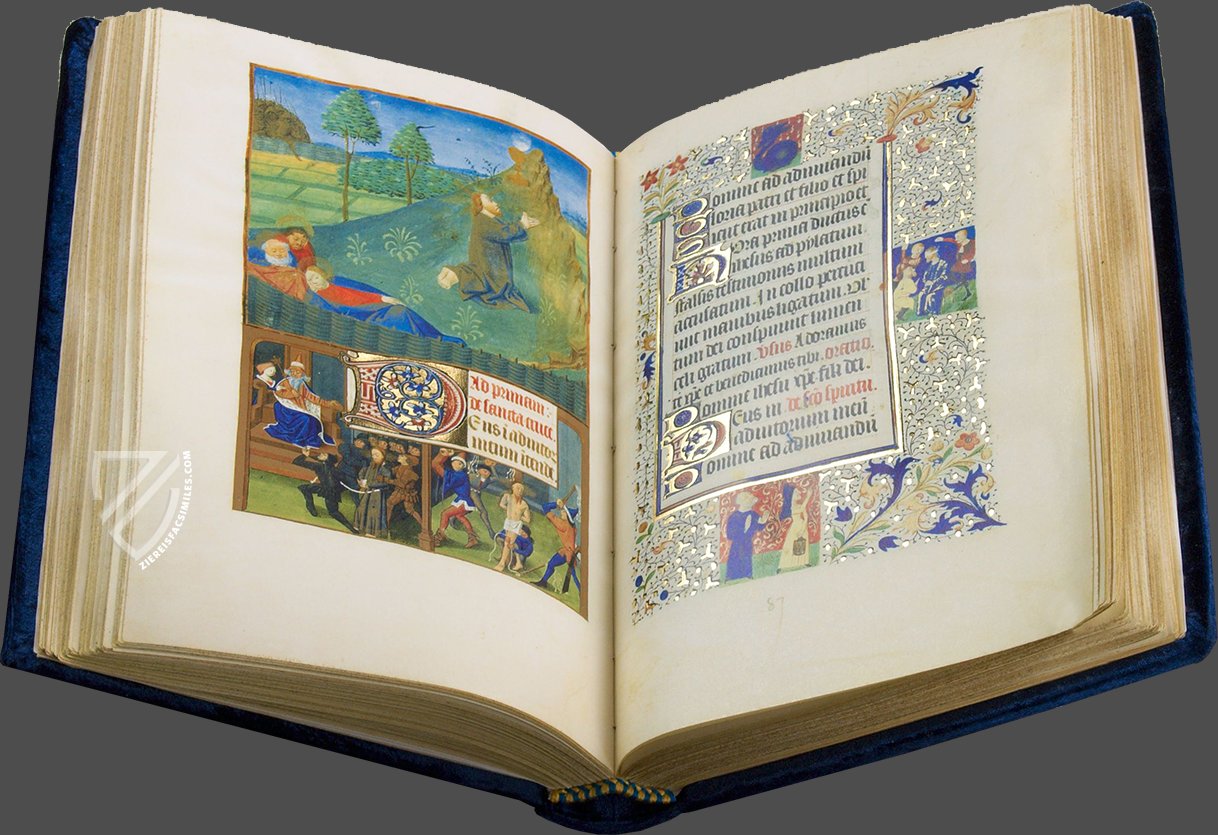 Ad primam:
de sancta cruce.
Eus i adiuto
meum inten
Domine ad adiuuandū
Gloria patri et filio et spi
Sicut erat in principio et
Hora prima ductus ē
ihesus ad pylatum.
falsis testimoniis multum
accusatum. In collo percuti
unt manibus ligatum. Vl
tum dei conspuunt lumen
celi gratum. V̄sus Adoramus
te xp̄e et benedicimus tibi. oratio.
Domine ihesu xp̄e fili dei.
Deus in de sc̄o spiritu.
adiutorium meū
Domine ad adiuuandū
87
ZIEREISFACSIMILES.COM